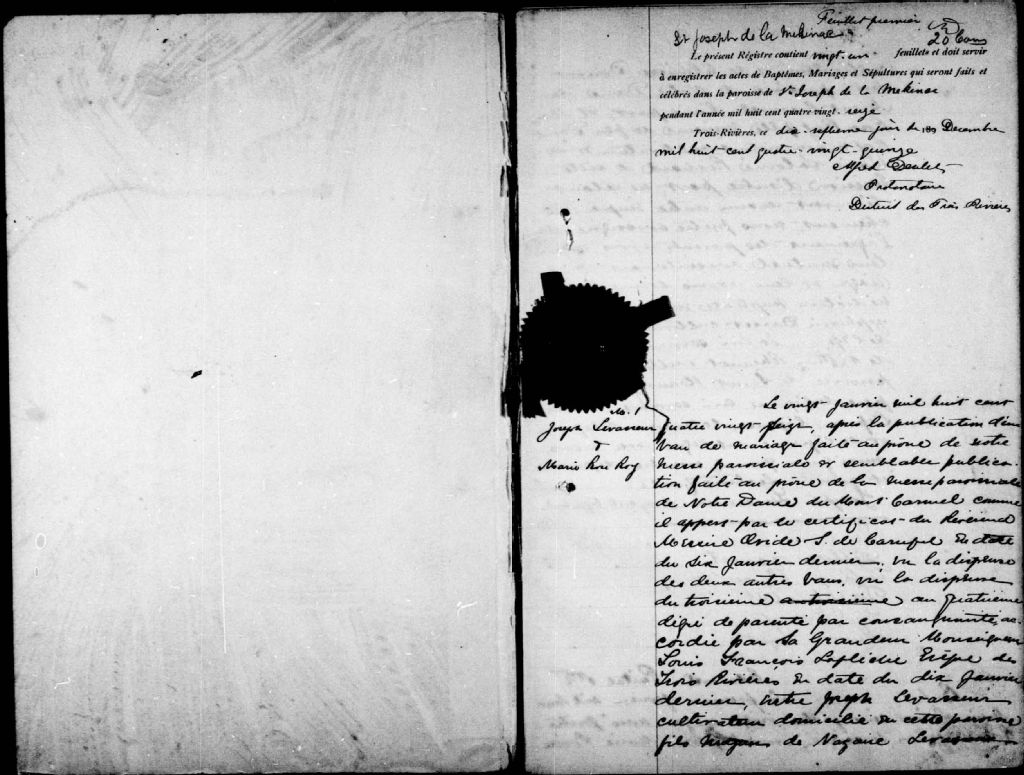 Feuillet premier
St Joseph de la Mekinac
20 Cans
Le présent Régistre contient vingt-un feuillets et doit servir
à enregistrer les actes de Baptêmes, Mariages et Sépultures qui seront faits et
célébrés dans la paroisse de St Joseph de la Mekinac
pendant l'année mil huit cent quatre vingt-seize
Trois-Rivières, ce dix-septieme jour de 189 Decembre
mil huit cent quatre-vingt quinze
Alfred Desilets
Protonotaire
District des Trois Rivieres
M. 1
Joseph Levasseur
&
Marie Rose Roy
Le vingt Janvier mil huit cent
quatre vingt seize, après la publication d'un
ban de mariage faite au prône de notre
messe paroissiale et semblable publica-
tion faite au prône de la messe paroissiale
de Notre Dame du Mont Carmel comme
il appert par le certificat du Révérend
Messire Ovide S. de Carufel en date
du six Janvier dernier, vu la dispense
des deux autres bans, vu la dispense
du troisieme au troisieme au quatrieme
degré de parenté par consanguinité, ac-
cordée par Sa Grandeur Monseigneur
Louis François Laflèche Evêque des
Trois Rivières en date du dix Janvier
dernier, entre Joseph Levasseur
cultivateur domicilié en cette paroisse
fils majeur de Nazaire Levasseur